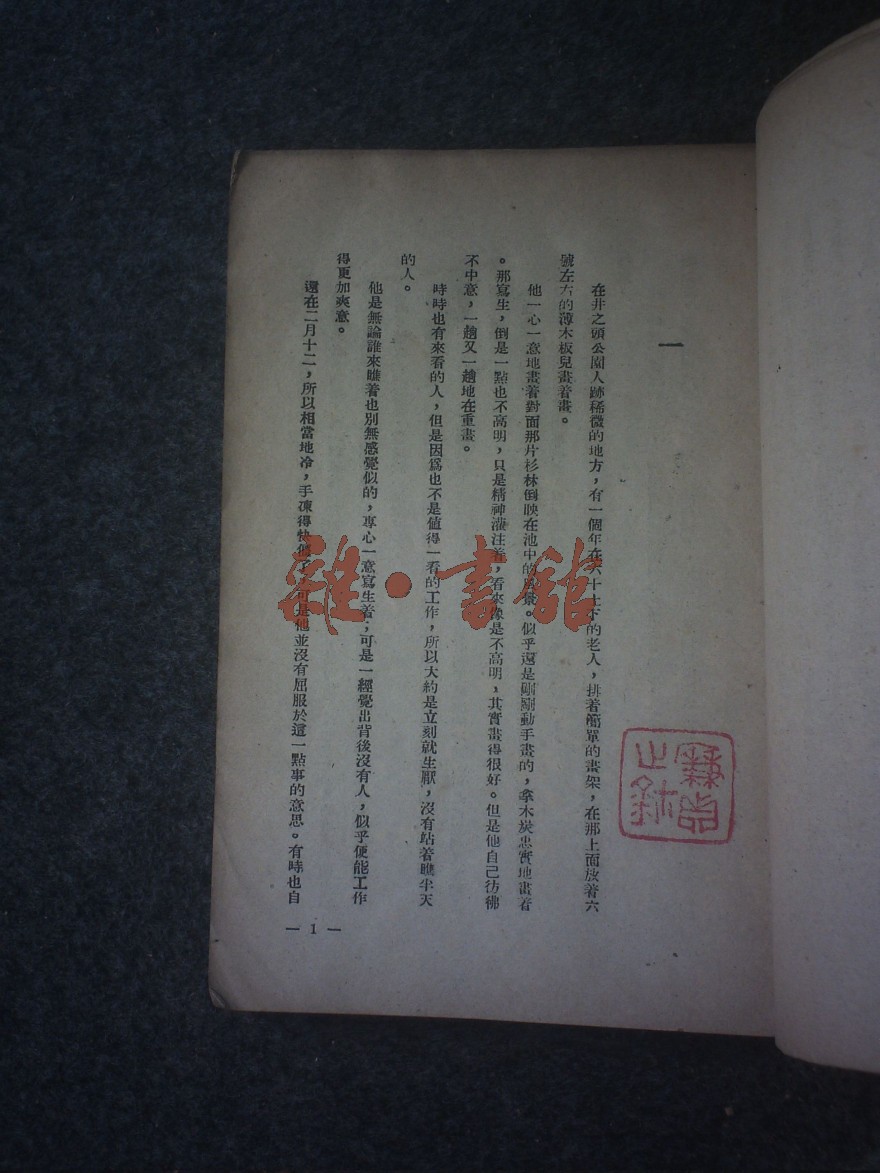 一
在井之頭公園人跡稀微的地方，有一個年在六十上下的老人，排着簡單的畫架，在那上面放着六
號左右的薄木板兒畫着畫。
他一心一意地畫着對面那片杉林倒映在池中的風景。似乎還是剛剛動手畫的，拿木炭忠實地畫着
。那寫生，倒是一點也不高明，只是精神灌注着，看來像是不高明，其實畫得很好。但是他自己彷彿
不中意，一趟又一趟地在重畫。
時時也有來看的人，但是因爲也不是值得一看的工作，所以大約是立刻就生厭，沒有站着瞧半天
的人。
他是無論誰來瞧着也別無感覺似的，專心一意寫生着；可是一經覺出背後沒有人，似乎便能工作
得更加爽意。
還在二月十二，所以相當地冷，手凍得快僵了，可是他並沒有屈服於這一點事的意思。有時也自
— 1 —
雜·書館